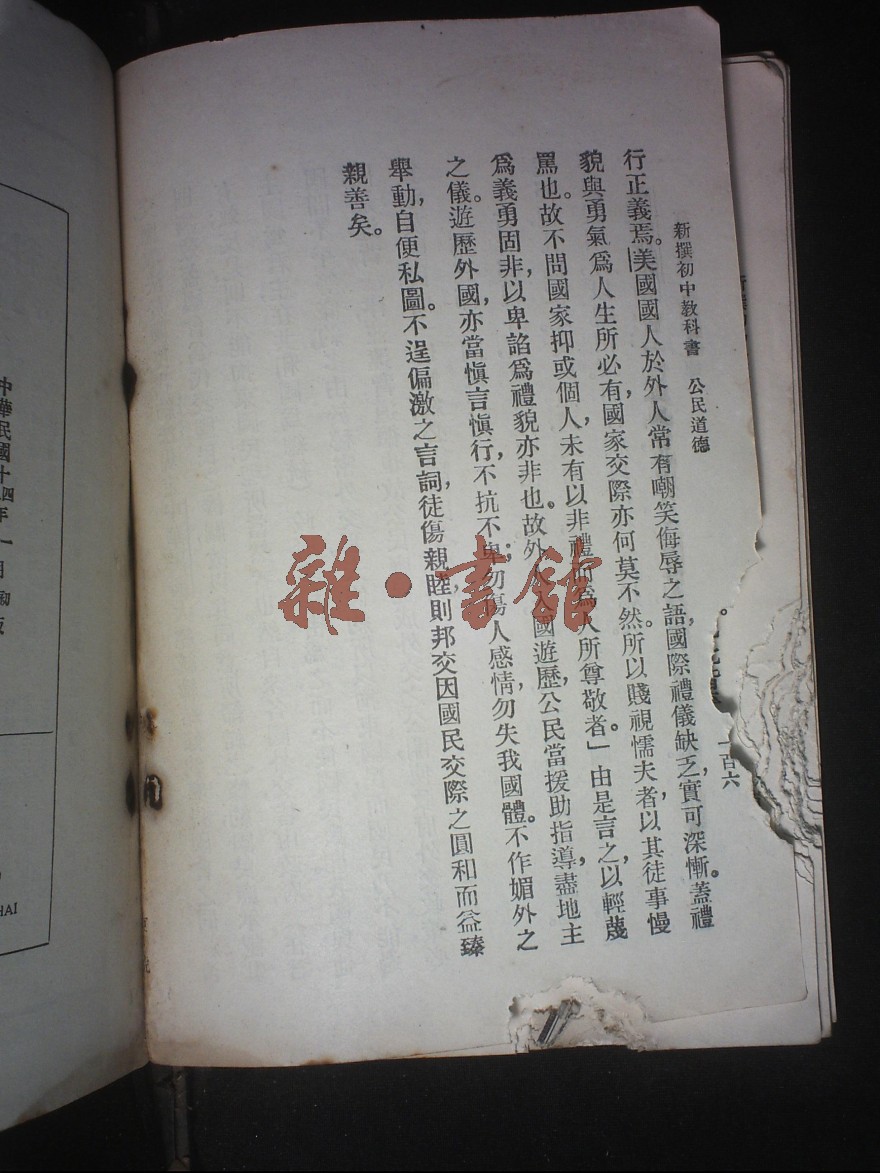 新撰初中教科書　公民道德
一百六
行正義焉。美國國人於外人常有嘲笑侮辱之語，國際禮儀缺乏，實可深慚。蓋禮
貌與勇氣爲人生所必有，國家交際亦何莫不然。所以賤視懦夫者，以其徒事慢
罵也。故不問國家抑或個人，未有以非禮而爲人所尊敬者。」由是言之，以輕蔑
爲義勇固非，以卑諂爲禮貌亦非也。故外人國遊歷，公民當援助指導，盡地主
之儀。遊歷外國，亦當愼言愼行，不抗不卑；勿傷人感情，勿失我國體。不作媚外之
舉動，自便私圖。不逞偏激之言詞，徒傷親睦，則邦交因國民交際之圓和而益臻
親善矣。
雜·書館
中華民國十四年一月初版
HAI